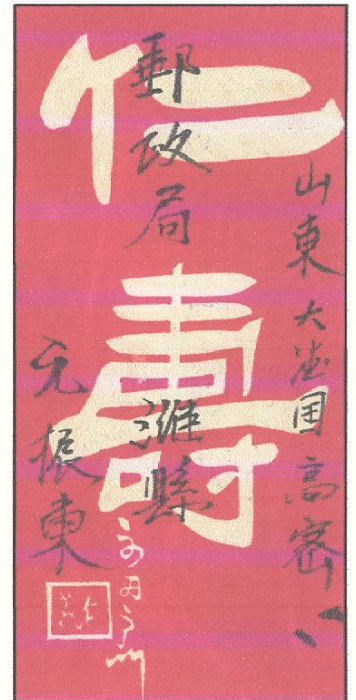 仁壽
山東大国高密
郵政局
濰縣
元振東